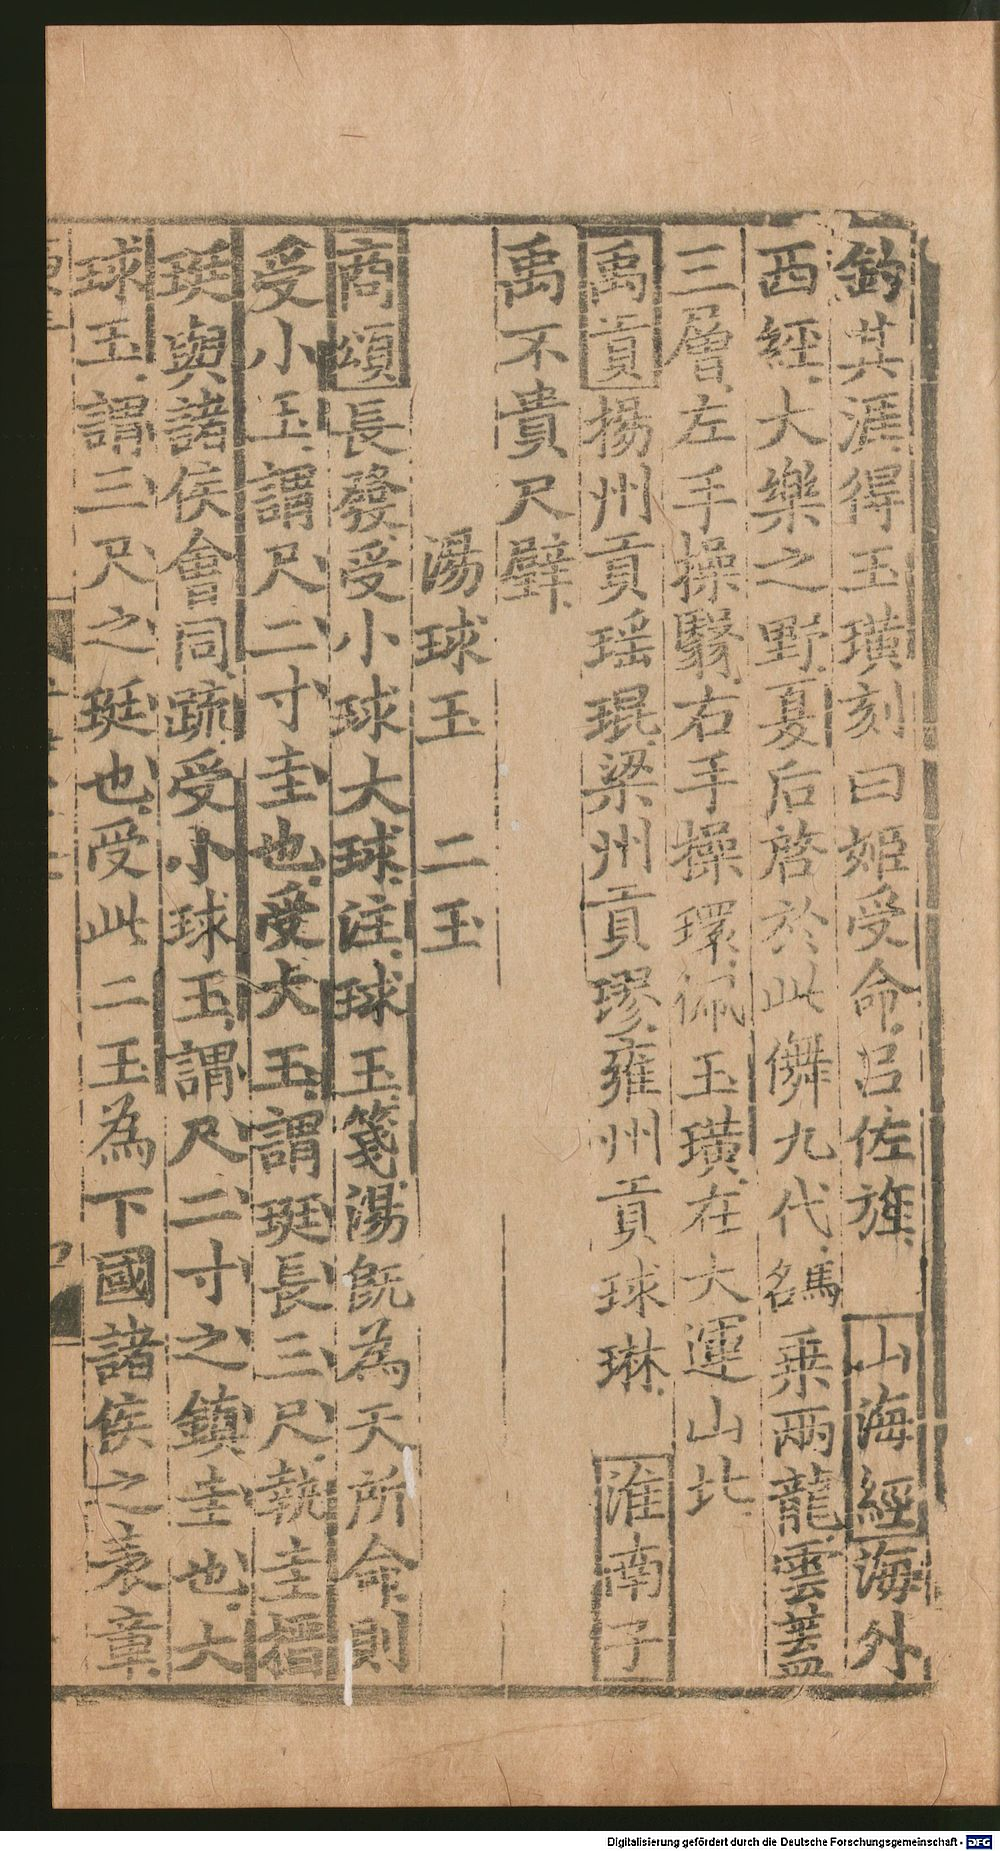 釣其涯得玉璜刻曰姬受命吕佐旌　山海經海外
西經大樂之野夏后啓於此儛九代名馬乗兩龍雲蓋
三層左手操翳右手操環佩玉璜在大運山北
禹貢揚州貢瑶琨梁州貢璆雍州貢球琳　淮南子
禹不貴尺璧
湯球玉　二玉
商頌長發受小球大球注球玉箋湯旣為天所命則
受小玉謂尺二寸圭也受大玉謂珽長三尺執圭搢
珽與諸侯會同疏受小球玉謂尺二寸之鎮圭也大
球玉謂三尺之珽也受此二玉為下國諸侯之表章
Digitalisierung gefördert durch die Deutsche Forschungsgemeinschaft - DFG